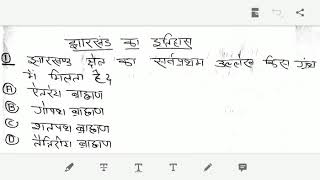 झारखंड का इतिहास
① झारखण्ड क्षेत्र का सर्वप्रथम उल्लेख किस ग्रंथ
में मिलता है?
Ⓐ ऐतरेय ब्राह्मण
Ⓑ गोपथ ब्राह्मण
Ⓒ शतपथ ब्राह्मण
Ⓓ तैत्तिरीय ब्राह्मण